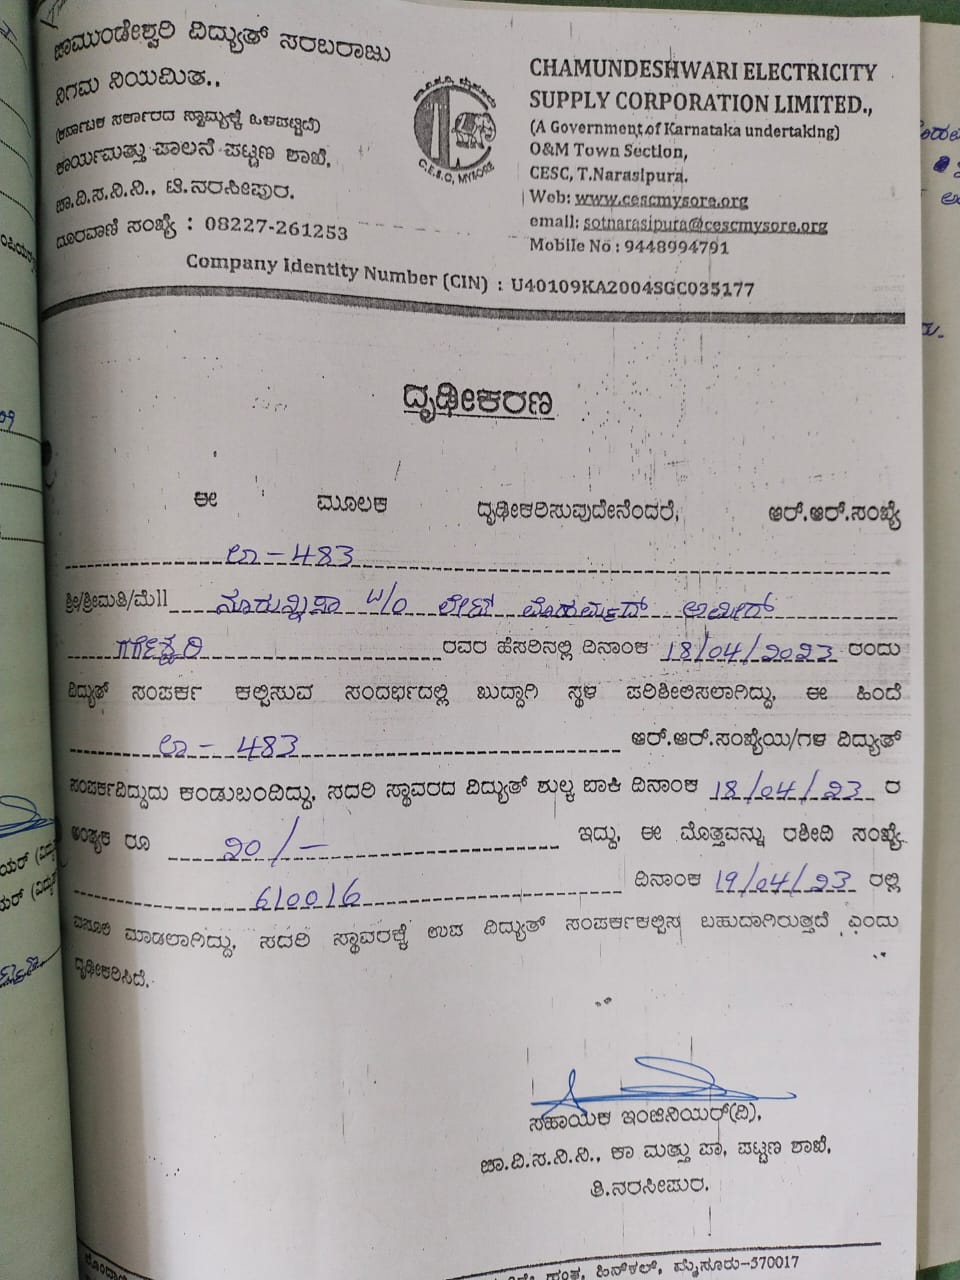 ಚಾಮುಂಡೇಶ್ವರಿ ವಿದ್ಯುತ್ ಸರಬರಾಜು
ನಿಗಮ ನಿಯಮಿತ.,
(ಕರ್ನಾಟಕ ಸರ್ಕಾರದ ಸ್ವಾಮ್ಯಕ್ಕೆ ಒಳಪಟ್ಟಿದೆ)
ಕಾರ್ಯಮತ್ತು ಪಾಲನೆ ಪಟ್ಟಣ ಶಾಖೆ,
ಚಾ.ವಿ.ಸ.ನಿ.ನಿ., ಟಿ.ನರಸೀಪುರ.
ದೂರವಾಣಿ ಸಂಖ್ಯೆ : 08227-261253
C.E.S.C, MYSORE
CHAMUNDESHWARI ELECTRICITY
SUPPLY CORPORATION LIMITED.,
(A Government of Karnataka undertaking)
O&M Town Section,
CESC, T.Narasipura.
Web: www.cescmysore.org
email: sotnarasipura@cescmysore.org
Mobile No : 9448994791
Company Identity Number (CIN) : U40109KA2004SGC035177
ದೃಢೀಕರಣ
ಈ ಮೂಲಕ ದೃಢೀಕರಿಸುವುದೇನೆಂದರೆ, ಆರ್.ಆರ್.ಸಂಖ್ಯೆ
ಲಾ-483
ಶ್ರೀ/ಶ್ರೀಮತಿ/ಮೆ|| ನೂರುನ್ನಿಸಾ w/o ಲೇಟ್ ಮೊಹಮ್ಮದ್ ಅಮೀರ್
ಗರ್ಗೇಶ್ವರಿ ರವರ ಹೆಸರಿನಲ್ಲಿ ದಿನಾಂಕ 18/04/2023 ರಂದು
ವಿದ್ಯುತ್ ಸಂಪರ್ಕ ಕಲ್ಪಿಸುವ ಸಂದರ್ಭದಲ್ಲಿ ಖುದ್ದಾಗಿ ಸ್ಥಳ ಪರಿಶೀಲಿಸಲಾಗಿದ್ದು, ಈ ಹಿಂದೆ
ಲಾ-483 ಆರ್.ಆರ್.ಸಂಖ್ಯೆಯ/ಗಳ ವಿದ್ಯುತ್
ಸಂಪರ್ಕವಿದ್ದುದು ಕಂಡುಬಂದಿದ್ದು, ಸದರಿ ಸ್ಥಾವರದ ವಿದ್ಯುತ್ ಶುಲ್ಕ ಬಾಕಿ ದಿನಾಂಕ 18/04/23 ರ
ಅಂತ್ಯಕೆ ರೂ 20/- ಇದ್ದು, ಈ ಮೊತ್ತವನ್ನು ರಶೀದಿ ಸಂಖ್ಯೆ.
610016 ದಿನಾಂಕ 19/04/23 ರಲ್ಲಿ
ವಸೂಲಿ ಮಾಡಲಾಗಿದ್ದು, ಸದರಿ ಸ್ಥಾವರಕ್ಕೆ ಉಪ ವಿದ್ಯುತ್ ಸಂಪರ್ಕಕಲ್ಪಿಸ ಬಹುದಾಗಿರುತ್ತದೆ ಎಂದು
ದೃಢೀಕರಿಸಿದೆ.
ಸಹಾಯಕ ಇಂಜಿನಿಯರ್(ವಿ),
ಚಾ.ವಿ.ಸ.ನಿ.ನಿ., ಕಾ ಮತ್ತು ಪಾ, ಪಟ್ಟಣ ಶಾಖೆ,
ತಿ.ನರಸೀಪುರ.
ಹಂತ, ಹಿನ್‌ಕಲ್, ಮೈಸೂರು-570017